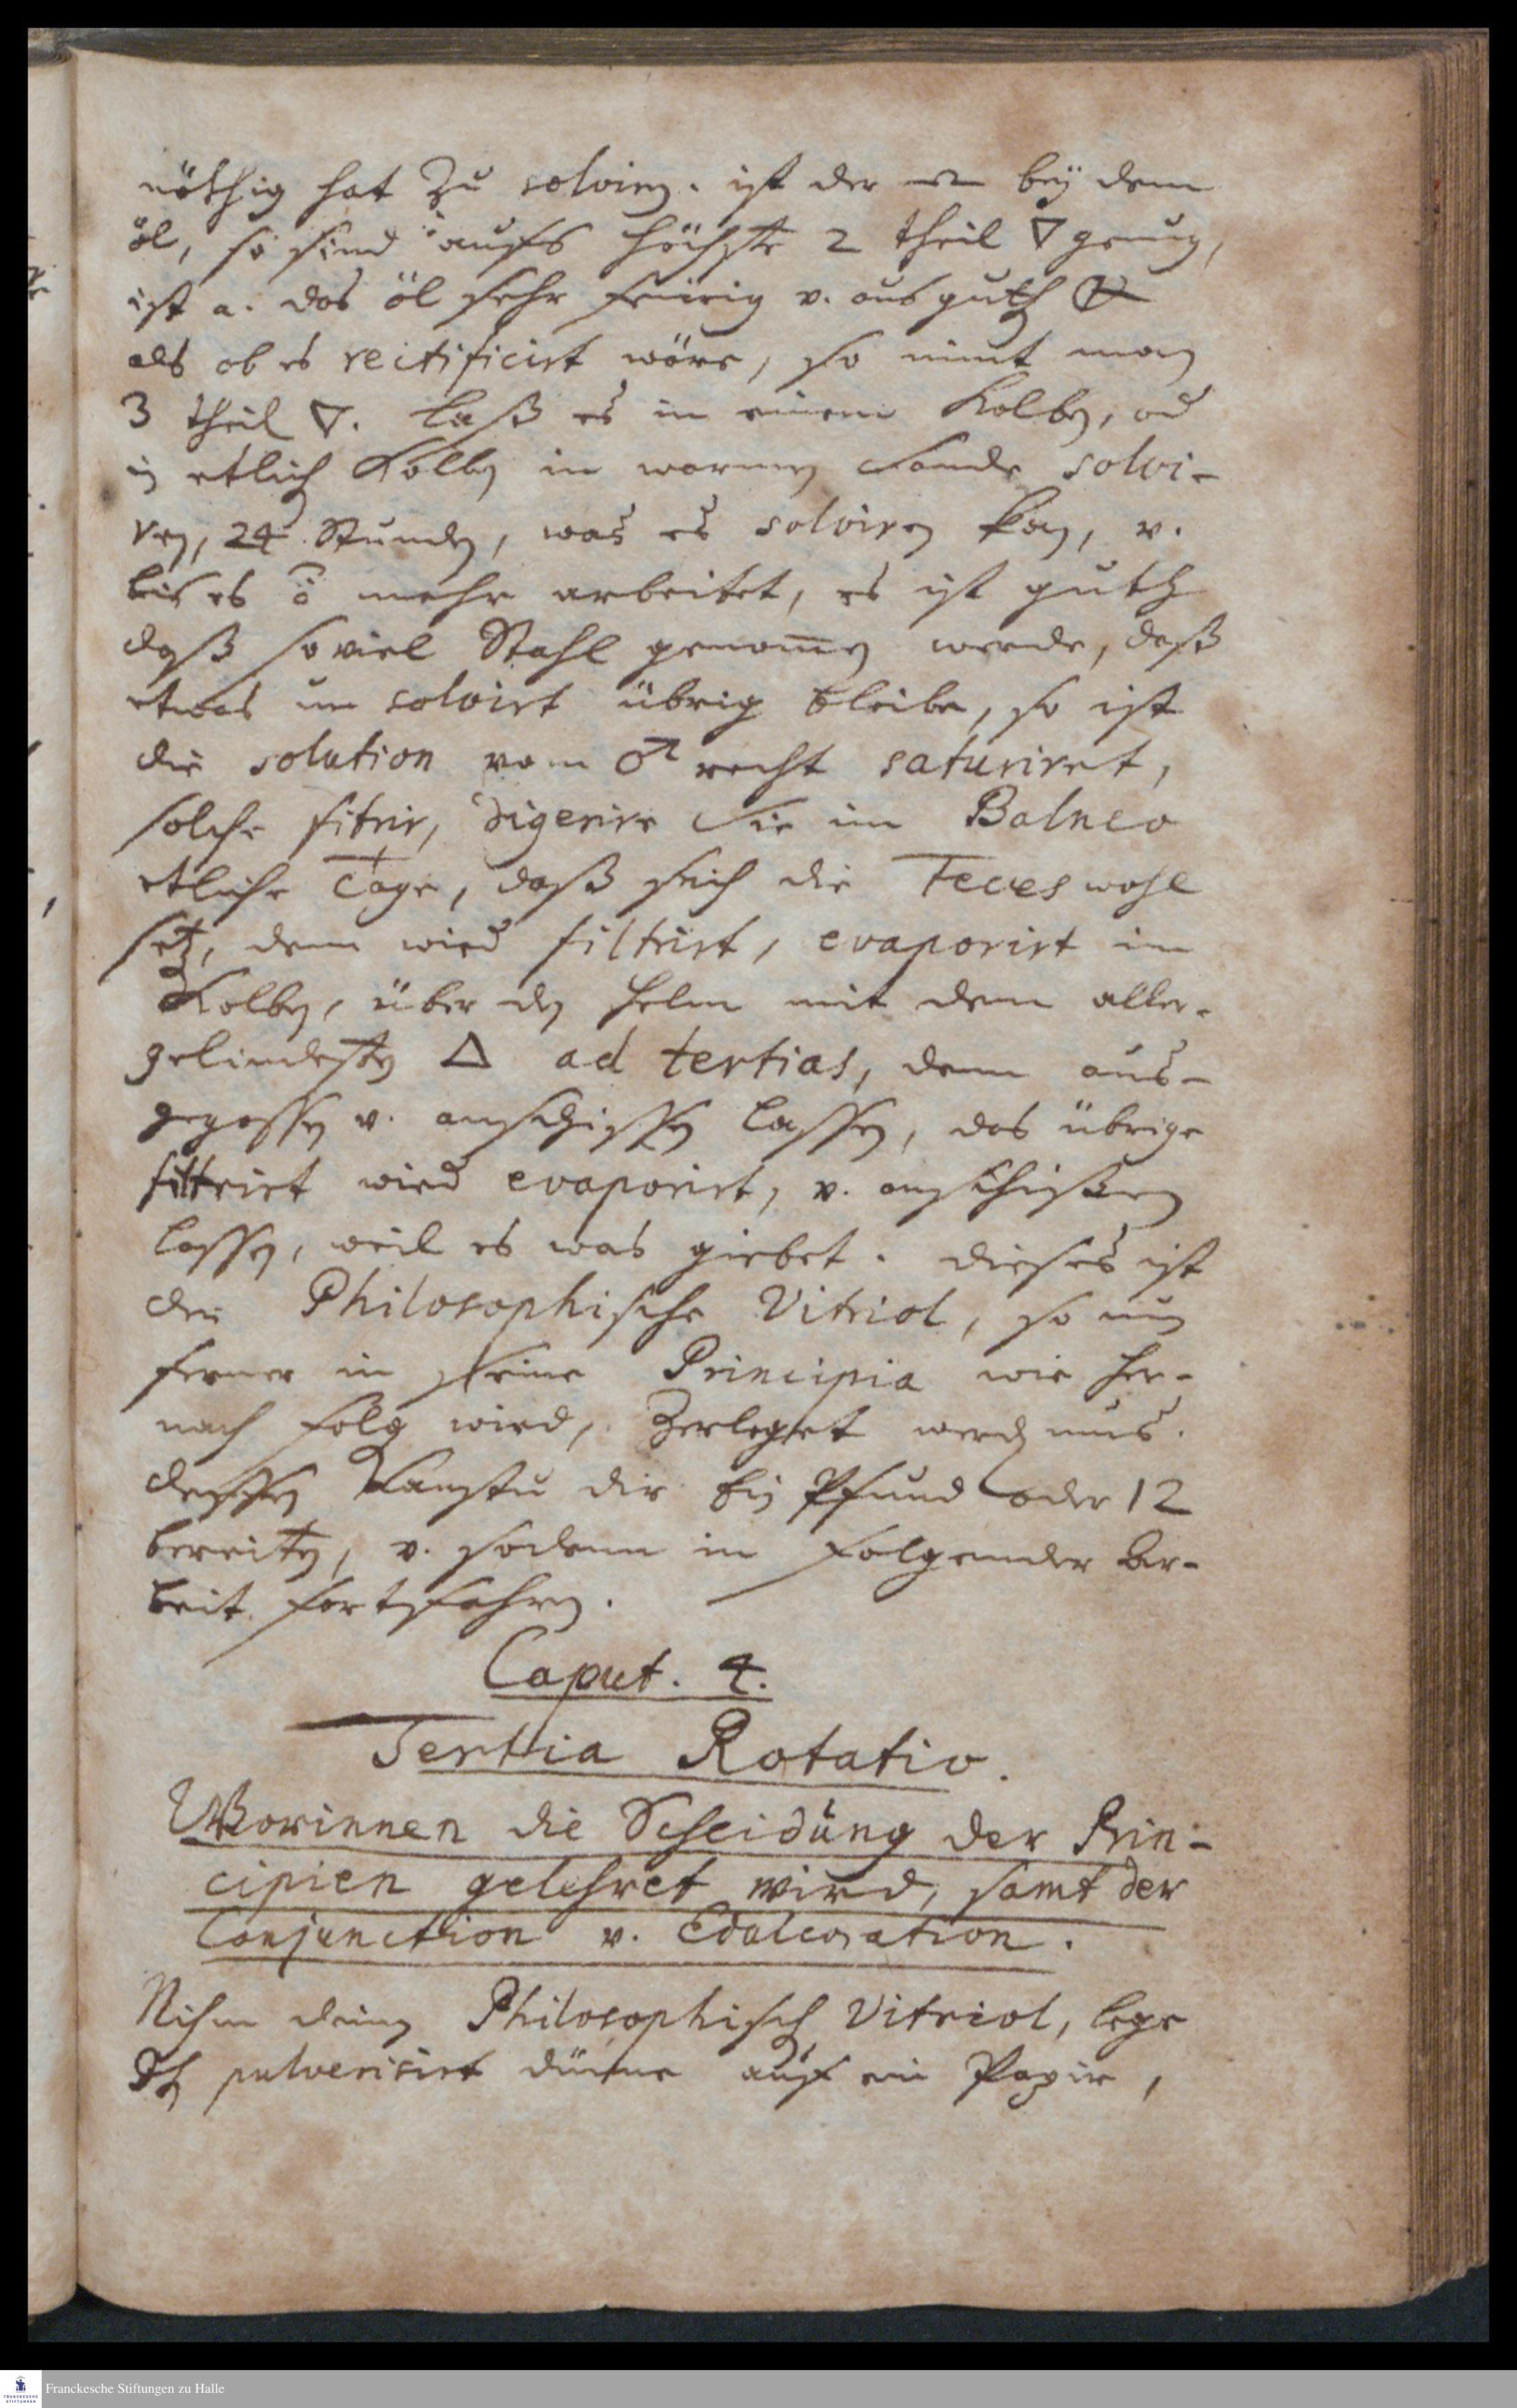 nöthig hat zu solviren. ist der bey dem
öl, so sind aufs höchste 2 theil 🜄 genug,
ist a. das öl sehr feurig v. aus guth
als ob es rectificirt wäre, so nimt man
3 theil 🜄. laß es in einem Kolben, od
in etlich Kolben in warmen Sande solvi-
ren, 24 Stunden, was es solviren kan, v.
bis es mehr arbeitet, es ist guth
daß so viel Stahl genom̅en werde, daß
etwas un solvirt übrig bleibe, so ist
die solution vom ♂ recht saturiret,
solche fitrir, digerire Sie im Balneo
etliche Tage, daß sich die Feces wohl
setz, denn wird filtrirt, evaporirt im
Kolben, über den Helm mit dem aller-
gelindesten △ ad tertias, denn aus-
gegossen v. anschissen lassen, das übrige
filtrirt wird evaporirt, v. anschissen
lassen, weil es was giebet. dieses ist
der Philosophische Vitriol, so nun
ferner in seine Principia wie her-
nach folg wird, zerleget werden mus.
dessen kanstu dir ein Pfund oder 12
bereiten, v. sodenn in folgender Ar-
beit fortfahren.
Caput. 4.
Tertia Rotatio.
Worinnen die Scheidung der Prin-
cipien gelehret wird, samt der
Conjunction v. Edulcoration.
Nihm deinen Philosophisch Vitriol, lege
Ihn pulverisirt dünne auf ein Papir,
Franckesche Stiftungen zu Halle